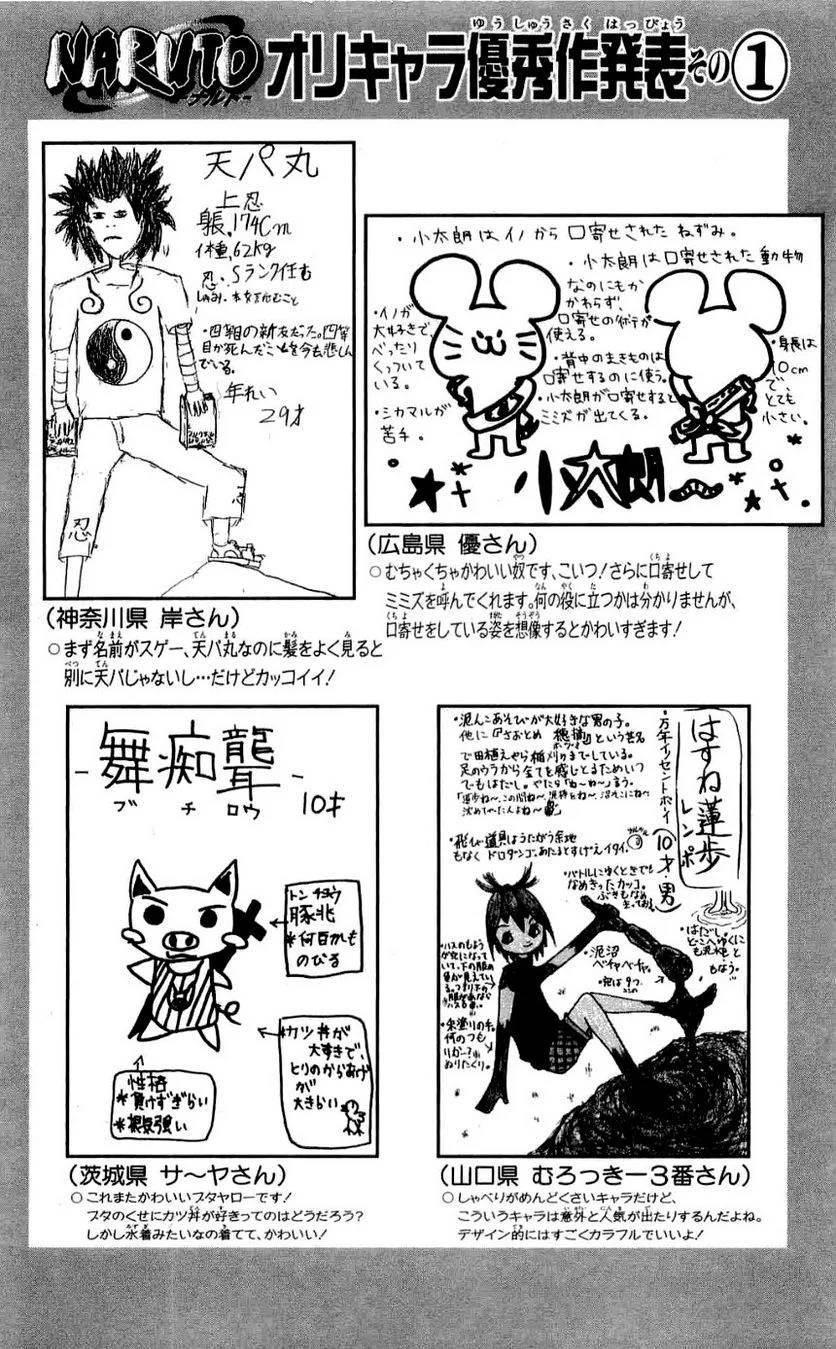 NARUTO
ナルト
オリキャラ優秀作発表その①
ゆうしゅうさくはっぴょう
天パ丸
上忍
174cm
体重.62kg
忍.Sランク任む
年れい
29才
忍
・小太朗はイノから口寄せされたねずみ。
・小太朗は口寄せされた動物
なのにもか
かわらず、
口寄せの術が
使える。
・イノが
大好きで、
べったり
くっついて
いる。
・シカマルが
苦手。
・背中のまきものは
口寄せするのに使う。
・小太朗が口寄せすると
ミミズが出てくる。
・身長は
10cm
で、
とても
小さい。
小太朗
(広島県 優さん)
○むちゃくちゃかわいい奴です、こいつ!さらに口寄せして
ミミズを呼んでくれます。何の役に立つかは分かりませんが、
口寄せをしている姿を想像するとかわいすぎます!
(神奈川県 岸さん)
○まず名前がスゲー、天パ丸なのに髪をよく見ると
別に天パじゃないし…だけどカッコイイ!
舞痴聾
ブチロウ
10才
トンチョウ
*何百かしも
のびる
カツ丼が
大すきで、
とりのからあげ
が
大きらい
性格
*負けずぎらい
*根気強い
(茨城県 サ〜ヤさん)
○これまたかわいいブタヤローです!
ブタのくせにカツ丼が好きってのはどうだろう?
しかし水着みたいなの着てて、かわいい!
はすね蓮歩
レンポ
(10才・男)
・泥んこあそびが大好きな男の子。
で田植えやら稲刈りまでしている。
足のウラから全てを感じとるためいつ
でもはだし。やたら「ね〜ね〜」言う。
・飛び道具はうたがう余地
もなくドロダンゴ。あたるとすげえイタイ。
・バトルにゆくときでも
なめきったカッコ。
・泥沼
ベチャベチャ。
・はだし。
どこへゆくに
も泥水と
もなう。
(山口県 むろっきー3番さん)
○しゃべりがめんどくさいキャラだけど、
こういうキャラは意外と人気が出たりするんだよね。
デザイン的にはすごくカラフルでいいよ!